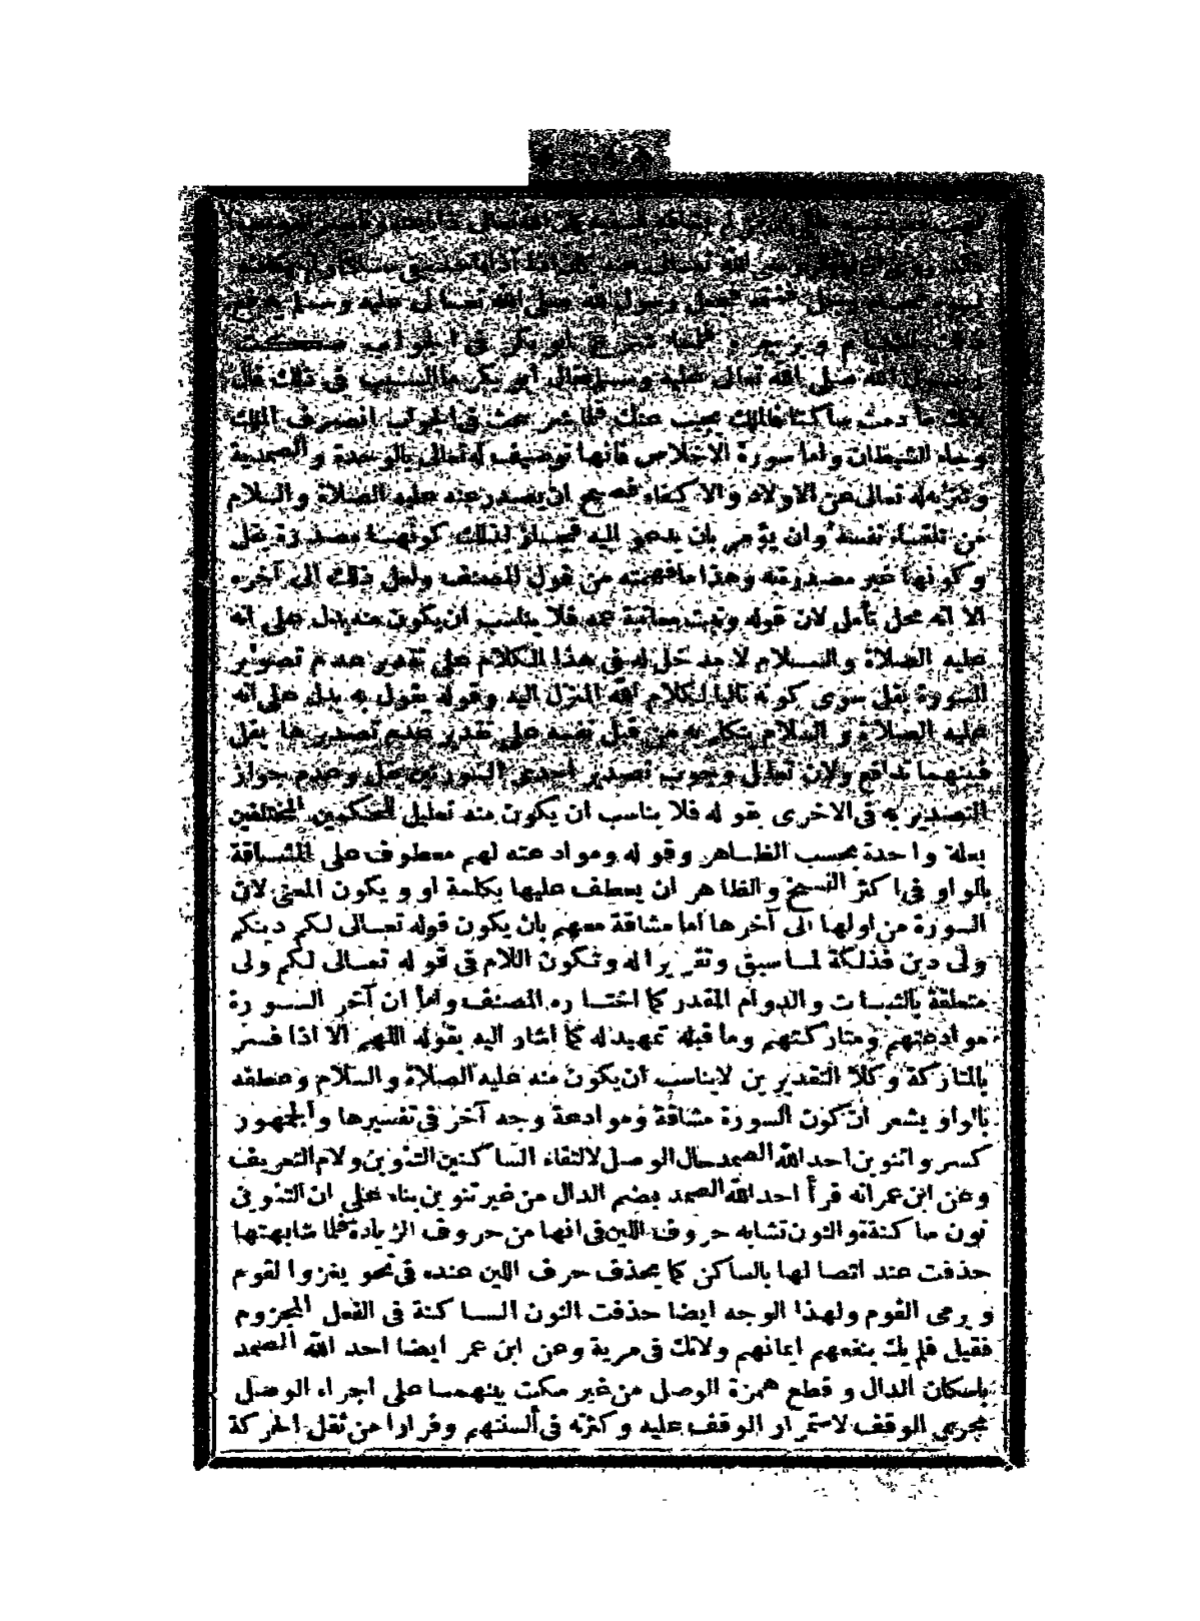 رسول الله صلى الله تعالى عليه وسلم فقال أبو بكر ما السبب فى ذلك قال
ما دمت ساكتا فالملك يجيب عنك فلما شرعت فى الجواب انصرف الملك
وجاء الشيطان واما سورة الاخلاص فانها توصيف له تعالى بالوحدة والصمدية
وتنزيه له تعالى عن الاولاد والا كفاء فصح ان يصدر عنه عليه الصلاة والسلام
من تلقاء نفسه وان يؤمر بان يدعو اليه فجاز لذلك كونها مصدرة بقل
وكونها غير مصدرة به وهذا ما فهمته من قول المصنف ولعل ذلك الى آخره
الا انه محل تأمل لان قوله وتبت معاتبة عمه فلا يناسب ان يكون منه يدل على انه
عليه الصلاة والسلام لا مدخل له فى هذا الكلام على تقدير عدم تصدير
السورة بقل سوى كونه تاليا لكلام الله المنزل اليه وقوله يقول به يدل على انه
عليه الصلاة و السلام يتكلم به من قبل نفسه على تقدير عدم تصديرها بقل
فبينهما تدافع ولان تعليل وجوب تصدير احدى السورتين بقل وعدم جواز
التصدير به فى الاخرى بقو له فلا يناسب ان يكون منه تعليل للحكمين المختلفين
بعلة واحدة بحسب الظاهر وقو له وموادعته لهم معطوف على المشاقة
بالواو فى اكثر النسخ والظاهر ان يعطف عليها بكلمة او و يكون المعنى لان
السورة من اولها الى آخرها اما مشاقة معهم بان يكون قوله تعالى لكم دينكم
ولى دين فذلكة لما سبق وتقريرا له وتكون اللام فى قو له تعالى لكم ولى
متعلقة بالثبات والدوام المقدر كما اختاره المصنف واما ان آخر السورة
موادعتهم ومتاركتهم وما قبله تمهيد له كما اشار اليه بقوله اللهم الا اذا فسر
بالمتاركة وكلا التقديرين لا يناسب ان يكون منه عليه الصلاة والسلام وعطفه
بالواو يشعر ان كون السورة مشاقة وموادعة وجه آخر فى تفسيرها والجمهور
كسروا تنوين احد الله الصمد حال الوصل لالتقاء الساكنين التنوين ولام التعريف
وعن ابن عمر انه قرأ احد الله الصمد بضم الدال من غير تنوين بناء على ان التنوين
نون ساكنة والنون تشابه حروف اللين فى انها من حروف الزيادة فلما شابهتها
حذفت عند اتصالها بالساكن كما يحذف حرف اللين عنده فى نحو يغزوا لقوم
و يرمى القوم ولهذا الوجه ايضا حذفت النون الساكنة فى الفعل المجزوم
فقيل فلم يك ينفعهم ايمانهم ولا تك فى مرية وعن ابن عمر ايضا احد الله الصمد
باسكان الدال و قطع همزة الوصل من غير سكت بينهما على اجراء الوصل
مجرى الوقف لاستمرار الوقف عليه وكثرته فى ألسنتهم وفرارا من ثقل الحركة